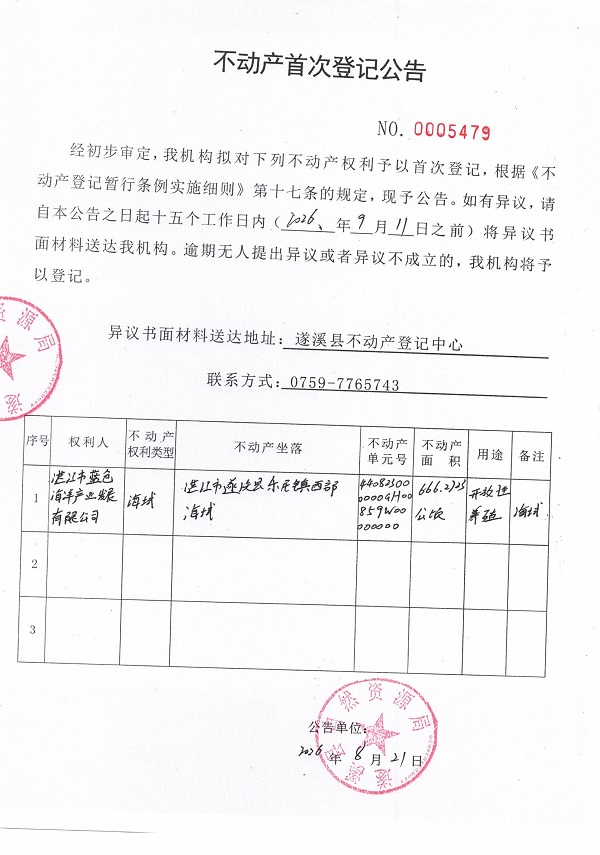 不动产首次登记公告
NO. 0005479
经初步审定,我机构拟对下列不动产权利予以首次登记,根据《不
动产登记暂行条例实施细则》第十七条的规定,现予公告。如有异议,请
自本公告之日起十五个工作日内(2026、年9月11日之前)将异议书
面材料送达我机构。逾期无人提出异议或者异议不成立的,我机构将予
以登记。
异议书面材料送达地址:遂溪县不动产登记中心
联系方式:0759-7765743
序号 权利人 不动产权利类型 不动产坐落 不动产单元号 不动产面积 用途 备注
1 湛江市蓝色海洋产业发展有限公司 海域 湛江市遂溪县乐民镇西部海域 440823000000GH00859W00000000 666.2723公顷 开放性养殖 海域
2
3
公告单位:
2026年8月21日
遂溪县自然资源局